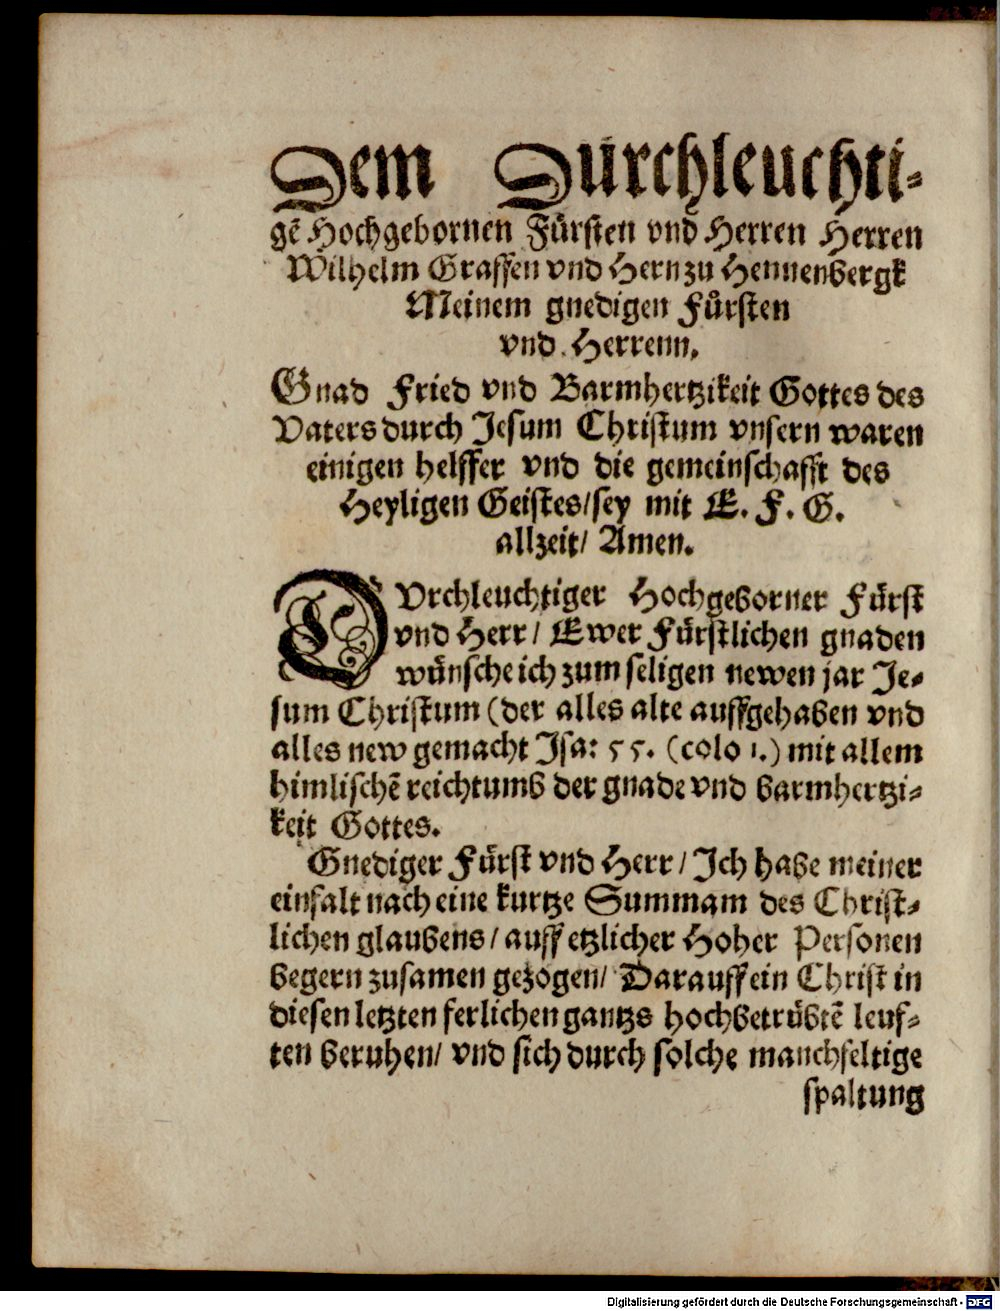 Dem Durchleuchti⸗
gẽ Hochgebornen Fürsten vnd Herren Herren
Wilhelm Graffen vnd Hern zu Hennenbergk
Meinem gnedigen Fürsten
vnd Herrenn.
Gnad Fried vnd Barmhertzikeit Gottes des
Vaters durch Jesum Christum vnsern waren
einigen helffer vnd die gemeinschafft des
Heyligen Geistes/sey mit E. F. G.
allzeit/ Amen.
DVrchleuchtiger Hochgeborner Fürst
vnd Herr/ Ewer Fürstlichen gnaden
wünsche ich zum seligen newen jar Je⸗
sum Christum (der alles alte auffgehaben vnd
alles new gemacht Jsa: 55. (colo 1.) mit allem
himlischẽ reichtumb der gnade vnd barmhertzi⸗
keit Gottes.
Gnediger Fürst vnd Herr/ Jch habe meiner
einfalt nach eine kurtze Summam des Christ⸗
lichen glaubens/ auff etzlicher Hoher Personen
begern zusamen gezogen/ Darauff ein Christ in
diesen letzten ferlichen gantzs hochbetrübtẽ leuf⸗
ten beruhen/ vnd sich durch solche manchfeltige
spaltung
Digitalisierung gefördert durch die Deutsche Forschungsgemeinschaft - DFG